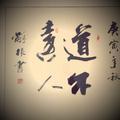 庚寅年秋
道不
遠人
書